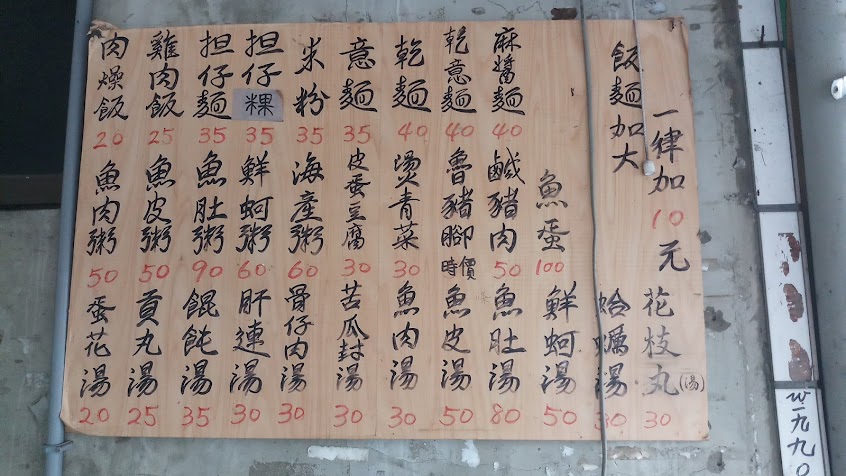 肉燥飯 20
雞肉飯 25
担仔麵 35
担仔粿 35
米粉 35
意麵 35
乾麵 40
乾意麵 40
麻醬麵 40
飯麵加大
一律加10元
魚肉粥 50
魚皮粥 50
魚肚粥 90
鮮蚵粥 60
海產粥 60
皮蛋豆腐 30
燙青菜 30
魯豬腳 時價
鹹豬肉 50
魚蛋 100
蛋花湯 20
貢丸湯 25
餛飩湯 35
肝連湯 30
骨仔肉湯 30
苦瓜封湯 30
魚肉湯 30
魚皮湯 50
魚肚湯 80
鮮蚵湯 50
蛤蠣湯 30
花枝丸(湯) 30
一九九0